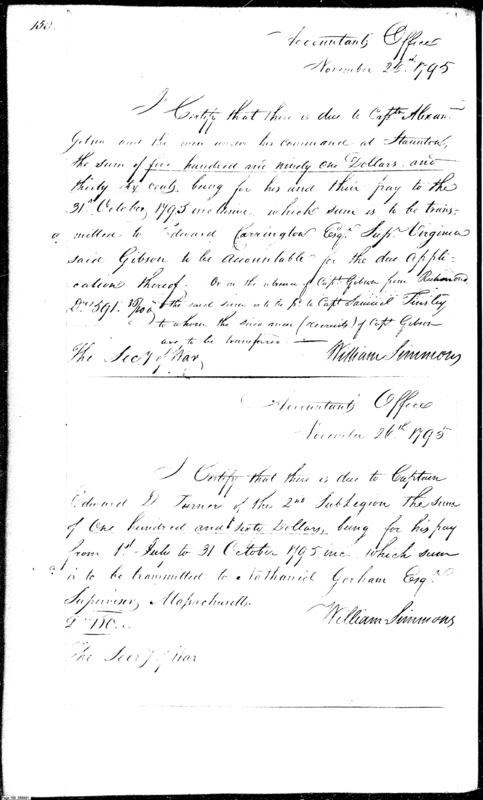 150.
Accountant's Office
November 26th. 1795
I Certify that there is due to Captn. Alexanr.
Gibson and the men under his command at Staunton,
the sum of five hundred and ninety one Dollars and
thirty six cents, being for his and their pay to the
31st October, 1795 inclusive, which sum is to be trans-
mitted to Edward Carrington Esqr. Supr. Virginia
said Gibson to be Accountable for the due Appli-
cation thereof. Or in the absence of Capt Gibson from Richmond,
Drs 591. 36/100 the said sum to be pd. to Capt Samuel Tinsley
to whom the said men (recruits) of Capt Gibson
are to be transferred.
The Secy of War,
William Simmons
Accountant's Office
November 26th. 1795
I Certify that there is due to Captain
Edward D Turner of the 2nd SubLegion the sum
of One hundred and sixty Dollars, being for his pay
from 1st July to 31 October 1795 inc. which sum
is to be transmitted to Nathaniel Gorham Esqr.
Supervisor, Massachusetts.
William Simmons
The Secy of War